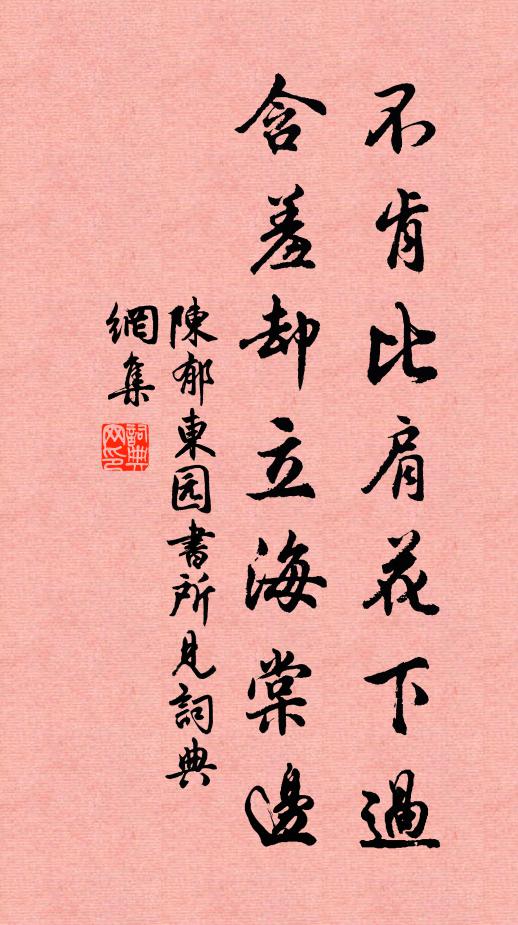 不肯比肩花下過
含羞却立海棠邊
陳郁東园書所見詞典
網集
詞典網印